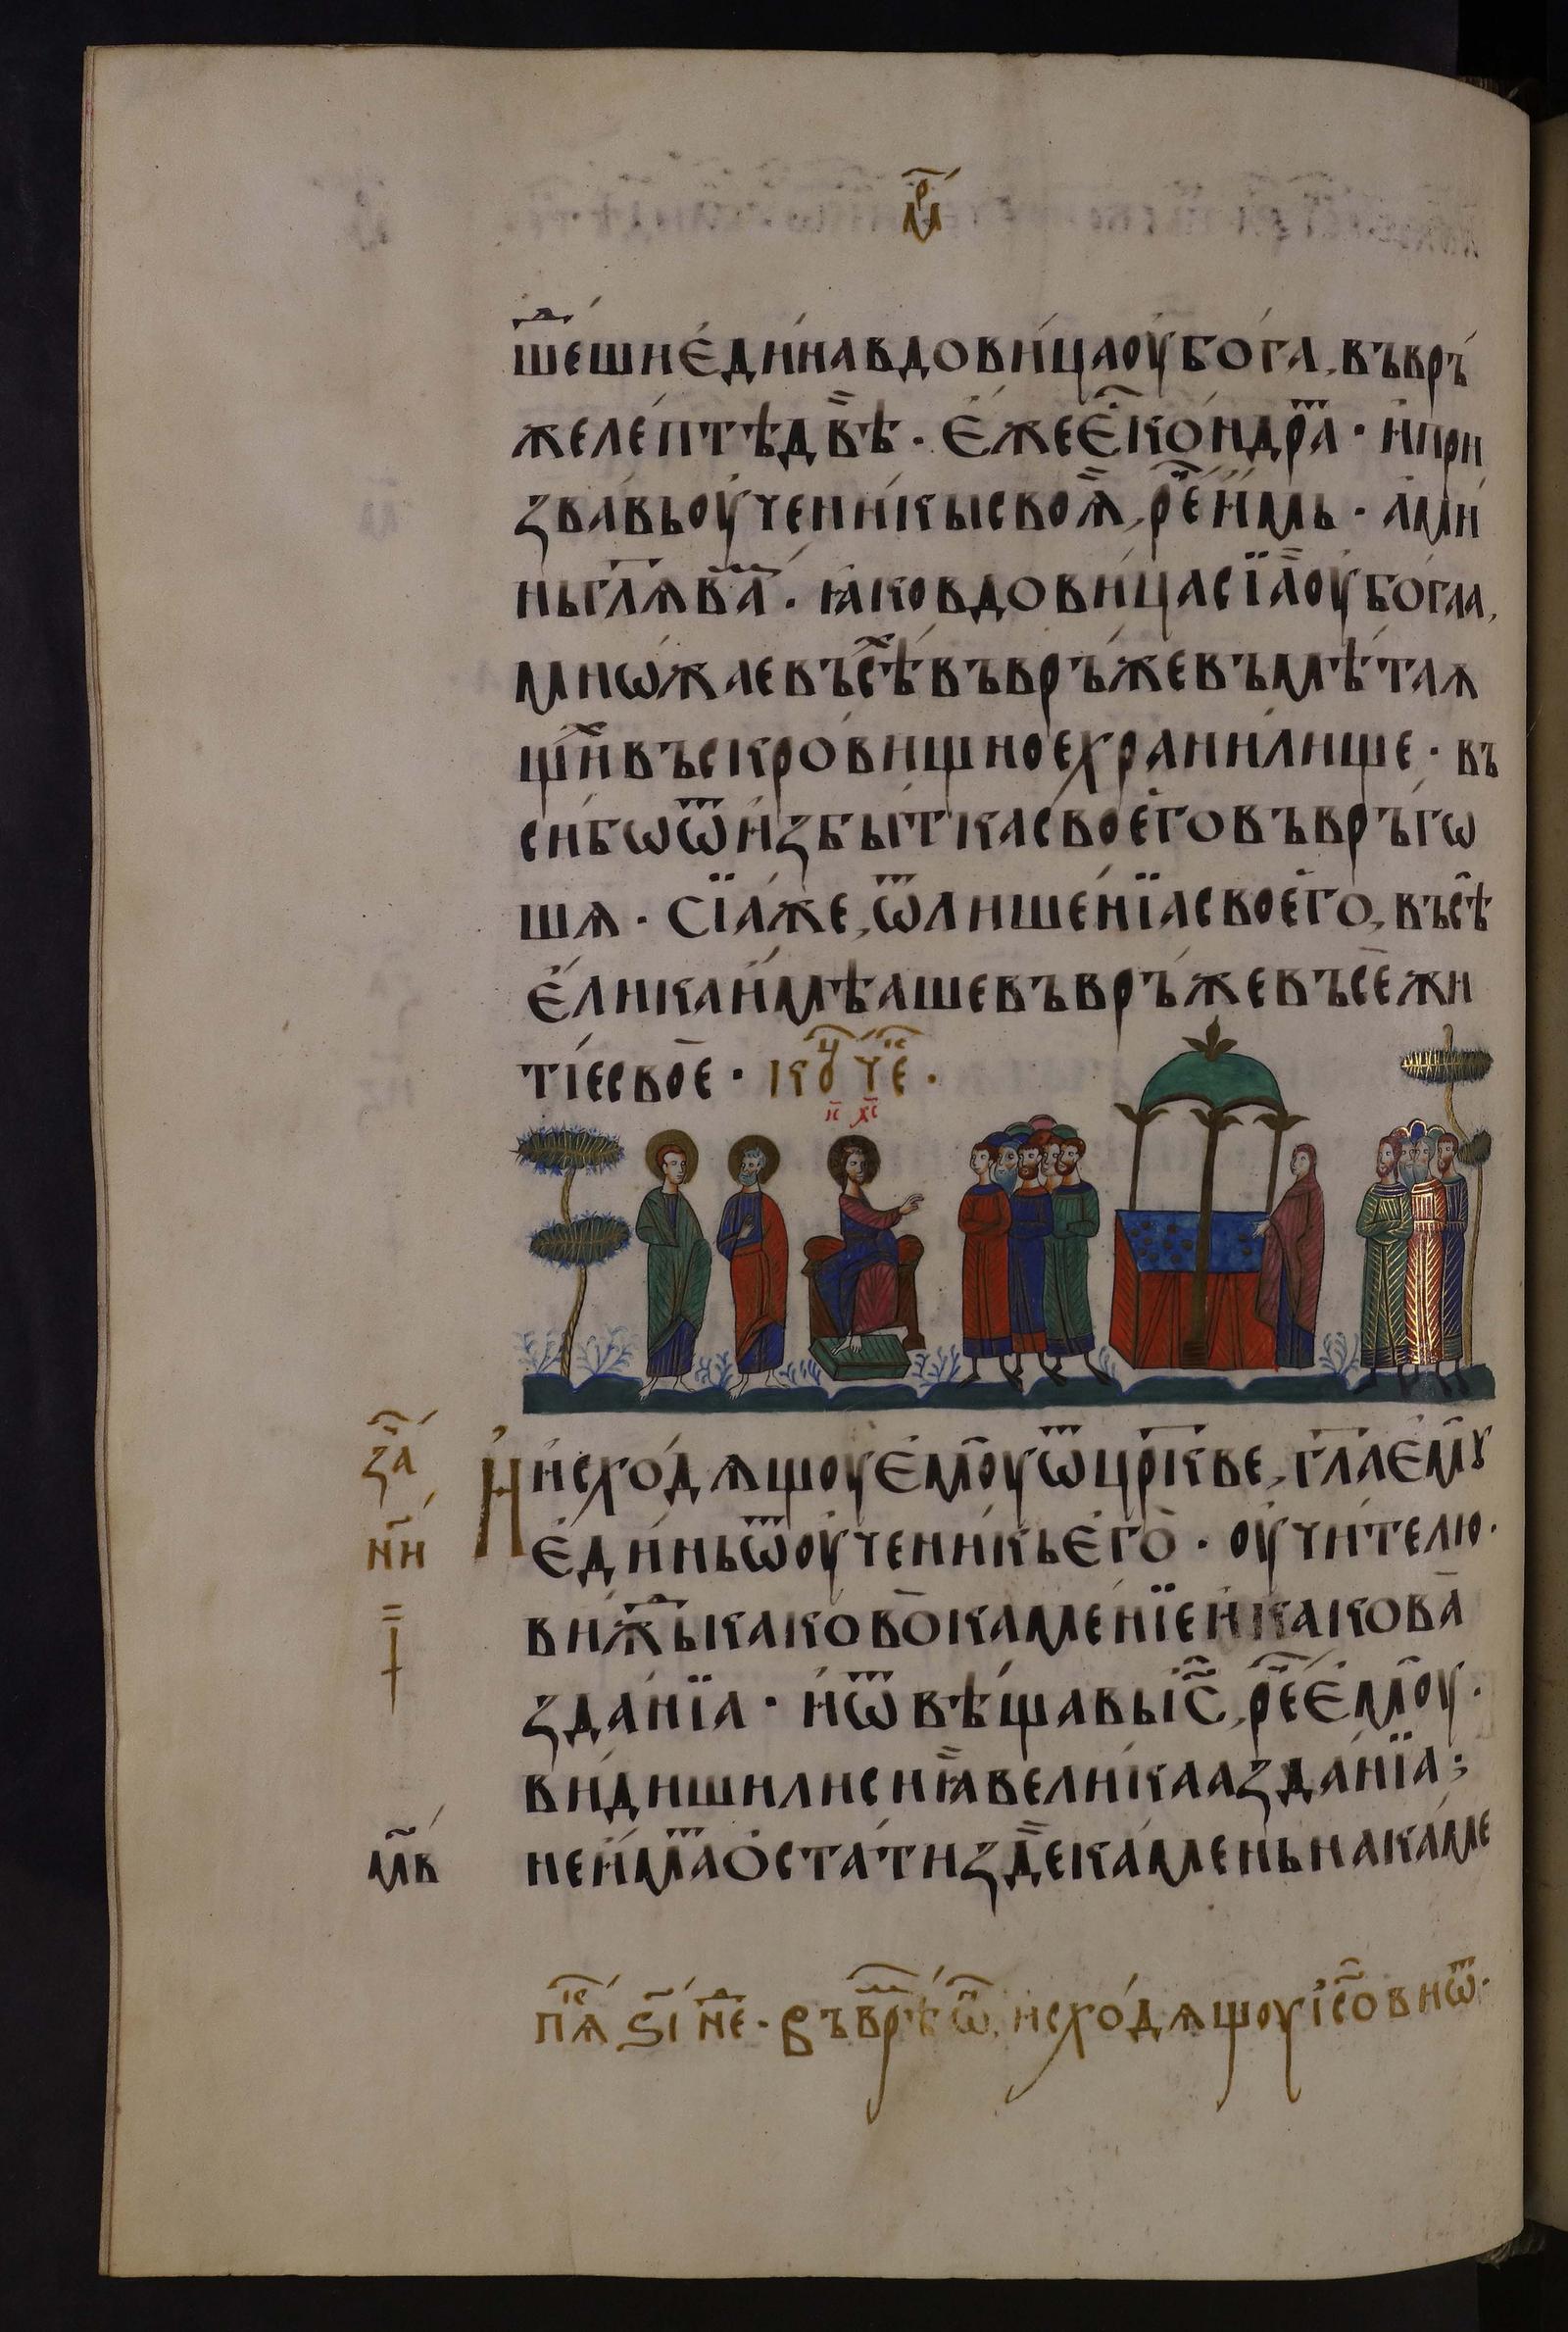 мⷬ҇
шеⷣшиє҆ди́на вдови́ца оу҆бо́га, въвръ́
же ле́птѣ двѣ̀ · є҆́же є҆́ⷭ҇ ко́ндраⷮ · и҆ при
зва́вь оу҆ченикы своѧ̀, рⷱ҇е и҆̀мь · а҆ми́
нь гл҃ѧ ваⷨ · ꙗ҆́ко вдови́ца сїа̀ оу҆бо́гаа,
мнѡ́жае въсѣ́ⷯ въвръ́же въмѣ́таѧ
щиⷯ въ скро́вищное храни́лище · въ
си́ бѡ ѿ и҆збы́тка своего̀ въвръ́гѡ
шѧ · сїа́же, ѿ лише́нїа своего̀, въсѣ̀
є҆ли́ка и҆мѣ́аше въвръ́же въсѐ жи
тїе́ своѐ · коⷰ҇ чеⷭ҇ ·
і҃с х҃с
за҃ и҆сходѧ́щоу є҆моу̀ ѿ цр҃кве, гл҃а є҆мꙋ̀
н҃и є҆ди́нь ѿ оу҆чени́кь є҆го̀ · оу҆чи́телю ·
ви́жⷣь каково̀ ка́менїе и҆ какова̀
зда́нїа · и҆ ѿвѣща́вь і҆с҃, рⷱ҇е є҆моу̀ ·
ви́диши ли сиꙗ̀ вели́каа зда́нїа ;
м҃в не и҆́маⷮ ѡ҆ста́ти здѐ ка́мень на ка́ме
пѧⷦ҇ ѕ҃і неⷣ · въ врⷨ҇ѣ ѡ҆́ⷩ, и҆сходѧ́щоу і҆с҃ови ѿ ·